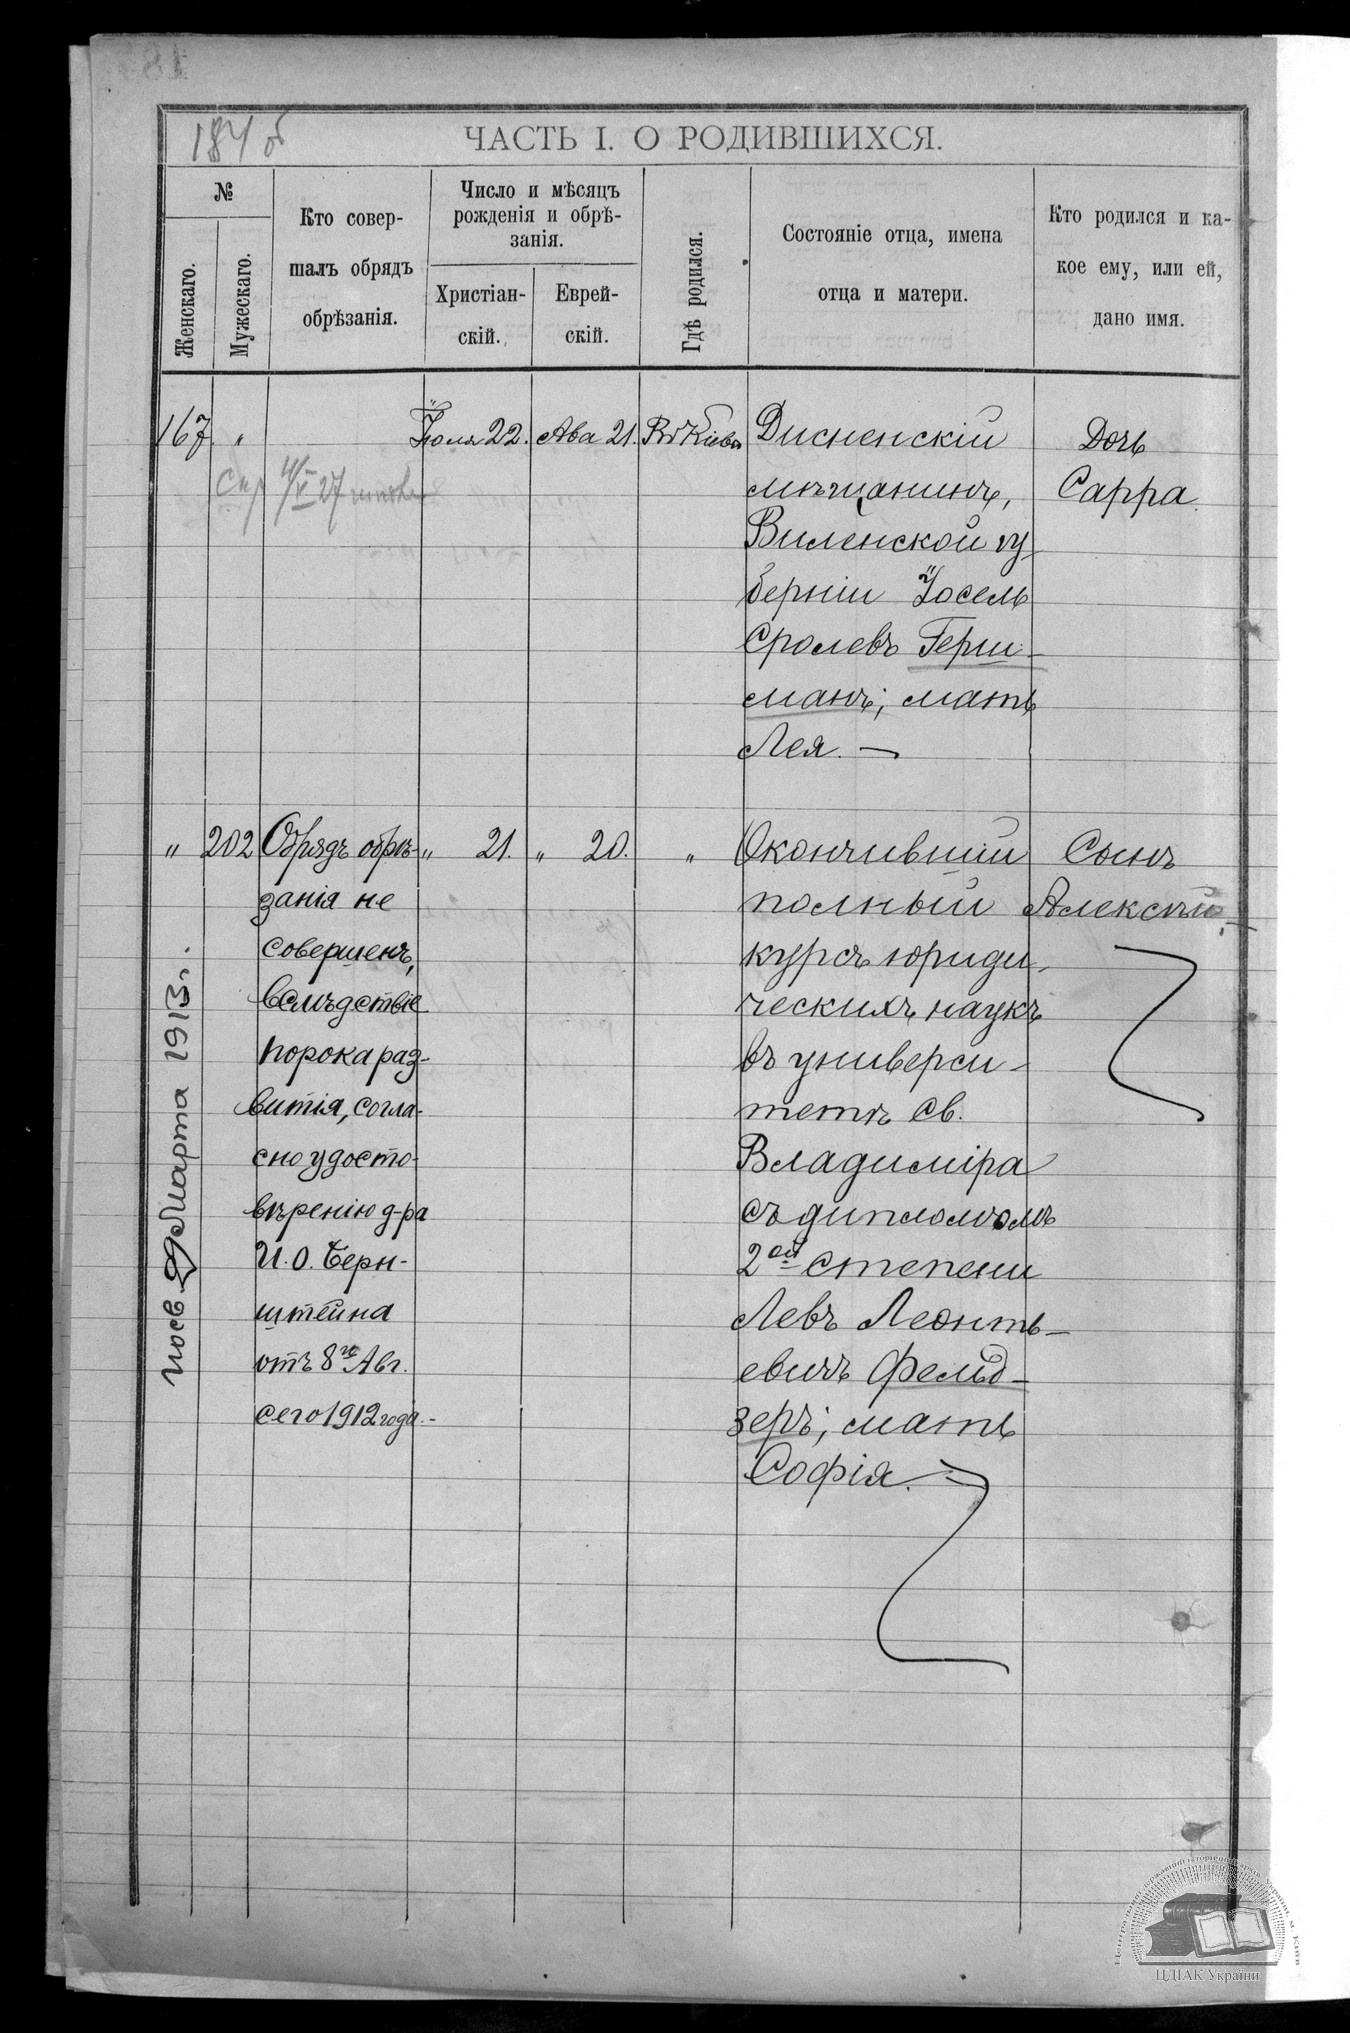 184 об
ЧАСТЬ I. О РОДИВШИХСЯ.
№
Женскаго.
Мужескаго.
Кто совер-
шалъ обрядъ
обрѣзанія.
Число и мѣсяцъ
рожденія и обрѣ-
занія.
Христіан-
скій.
Еврей-
скій.
Гдѣ родился.
Состояніе отца, имена
отца и матери.
Кто родился и ка-
кое ему, или ей,
дано имя.
167 " Іюля 22. Ава 21. Въ Кіевѣ
Дисненскій
мѣщанинъ,
Виленской гу-
берніи Іосель
Сролевъ Герш-
манъ; мать
Лея. —
Дочь
Сарра.
" 202
Обрядъ обрѣ-
занія не
совершенъ,
вслѣдствіе
порока раз-
витія, согла-
сно удосто-
вѣренію д-ра
И. О. Берн-
штейна
отъ 8го Авг.
сего 1912 года.-
" 21. " 20. "
Окончившій
полный
курсъ юриди-
ческихъ наукъ
въ универси-
тетѣ Св.
Владиміра
съ дипломомъ
2ой степени
Левъ Леонть-
евичъ Фельд-
зеръ; мать
Софія. —
Сынъ
Алексѣй.
Марта 1913 г.
Центральний державний історичний архів України, м. Київ
ЦДІАК України